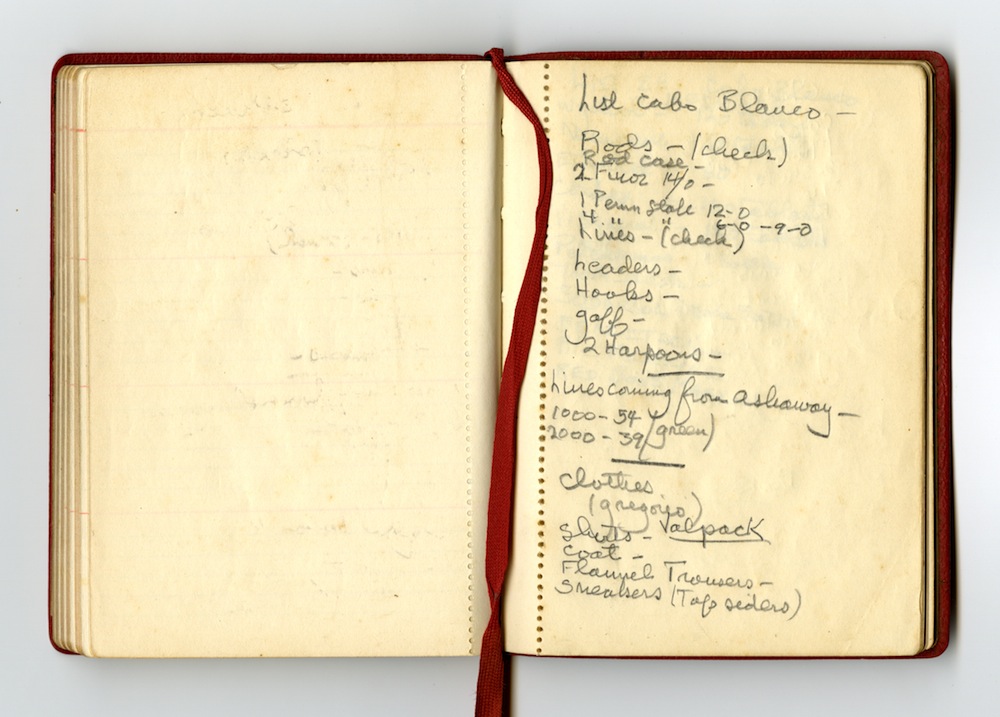 List Cabo Blanco –
Rods – (check)
Rod case –
2 Finor 14/0 –
1 Penn Stall 12-0
4 " " 6-0 – 9-0
Lines – (check)
Leaders –
Hooks –
gaff –
2 Harpoons –
Lines coming from Ashaway –
1000 – 54 (green)
2000 – 39
Clothes
(gregorio)
Shirts – Valpack
Coat –
Flannel Trousers –
Sneakers (Top siders)